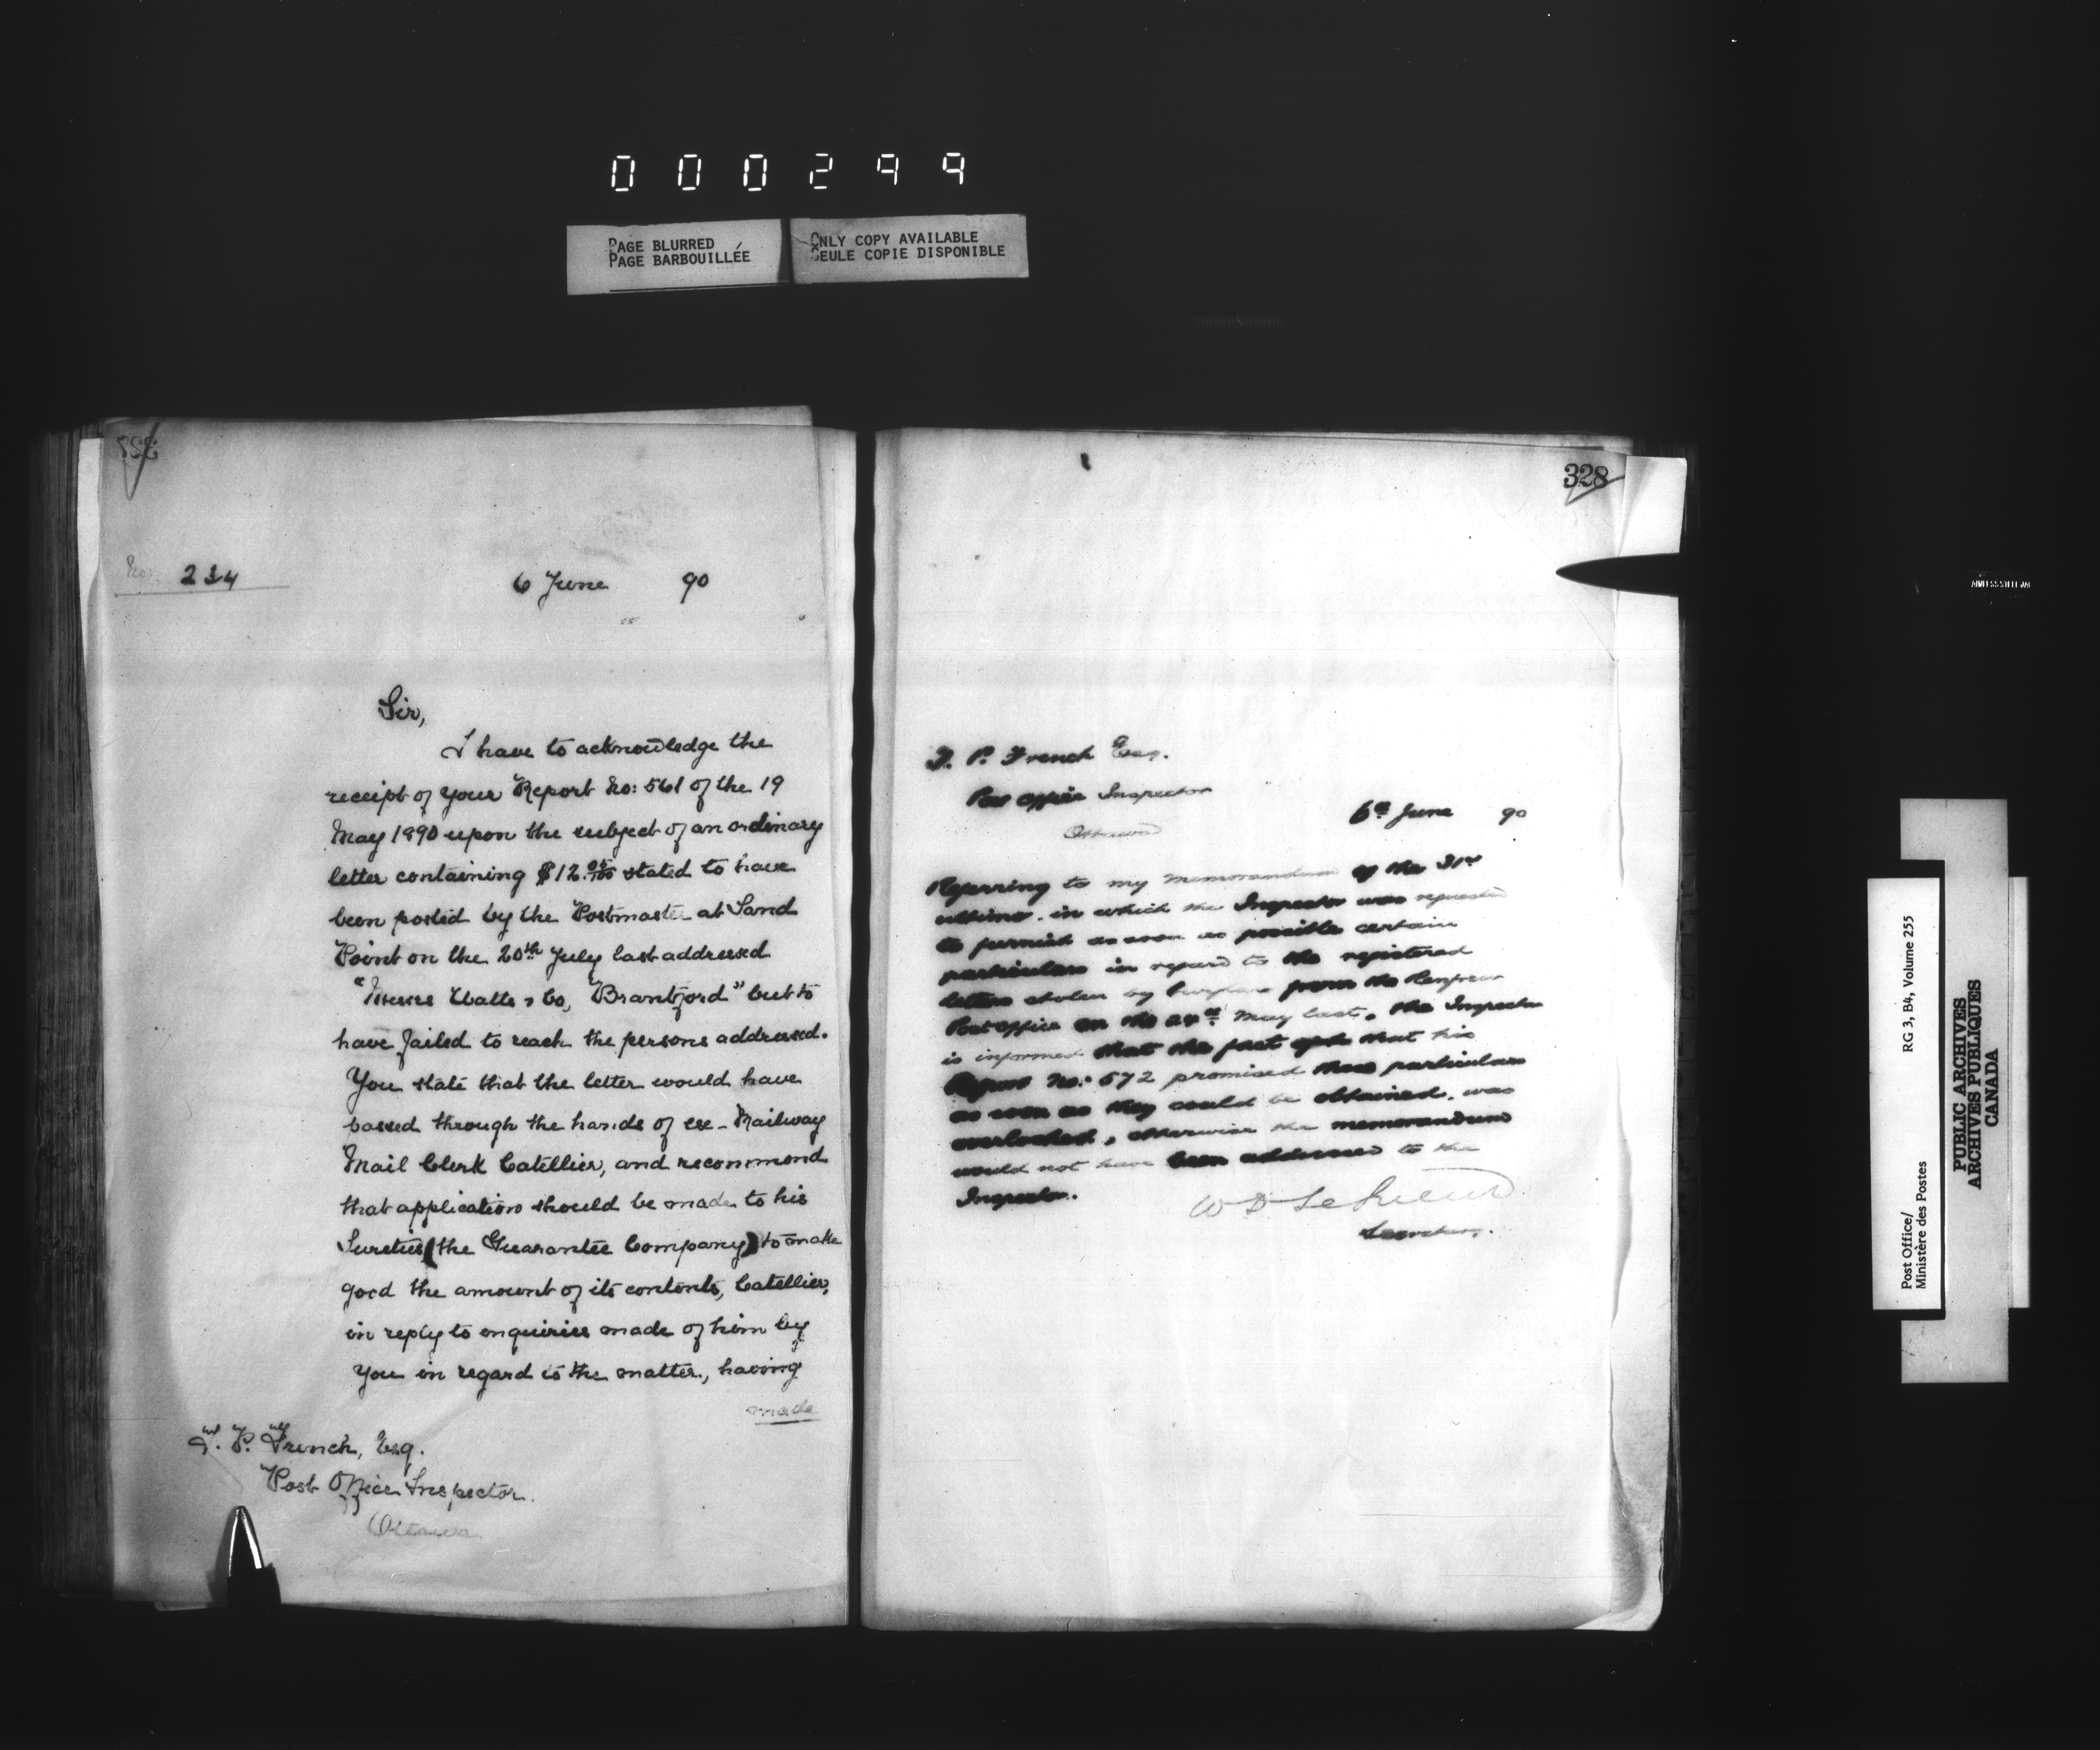 000299
PAGE BLURRED
PAGE BARBOUILLÉE
ONLY COPY AVAILABLE
SEULE COPIE DISPONIBLE
No. 234
6 June 90
Sir,
I have to acknowledge the
receipt of your Report No: 561 of the 19
May 1890 upon the subject of an ordinary
letter containing $12. stated to have
been posted by the Postmaster at Sand
Point on the 20th July last addressed
"Messrs Watts & Co, Brantford" but to
have failed to reach the persons addressed.
You state that the letter would have
passed through the hands of ex-Railway
Mail Clerk Catellier, and recommend
that application should be made to his
Sureties (the Guarantee Company) to make
good the amount of its contents, Catellier,
in reply to enquiries made of him by
you in regard to the matter, having
made
T. P. French, Esq.
Post Office Inspector.
Ottawa
328
T. P. French Esq.
Post Office Inspector
Ottawa
6th June 90
Referring to my memorandum of the 31st
ultimo, in which the Inspector was requested
to furnish as soon as possible certain
particulars in regard to the registered
letters stolen by burglars from the Renfrew
Post office on the 24th May last, the Inspector
is informed that the fact that his
Report No: 572 promised these particulars
as soon as they could be obtained, was
overlooked, otherwise the memorandum
would not have been addressed to the
Inspector.
W D LeSueur
Secretary.
Post Office/ RG 3, B4, Volume 255
Ministère des Postes
PUBLIC ARCHIVES
ARCHIVES PUBLIQUES
CANADA